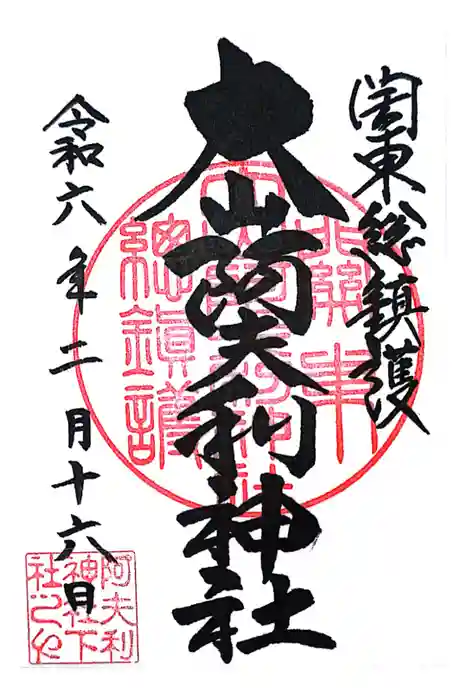 関東総鎮護
大山阿夫利神社
令和六年二月十六日
関東
総鎮護
阿夫利
神社下
社之印